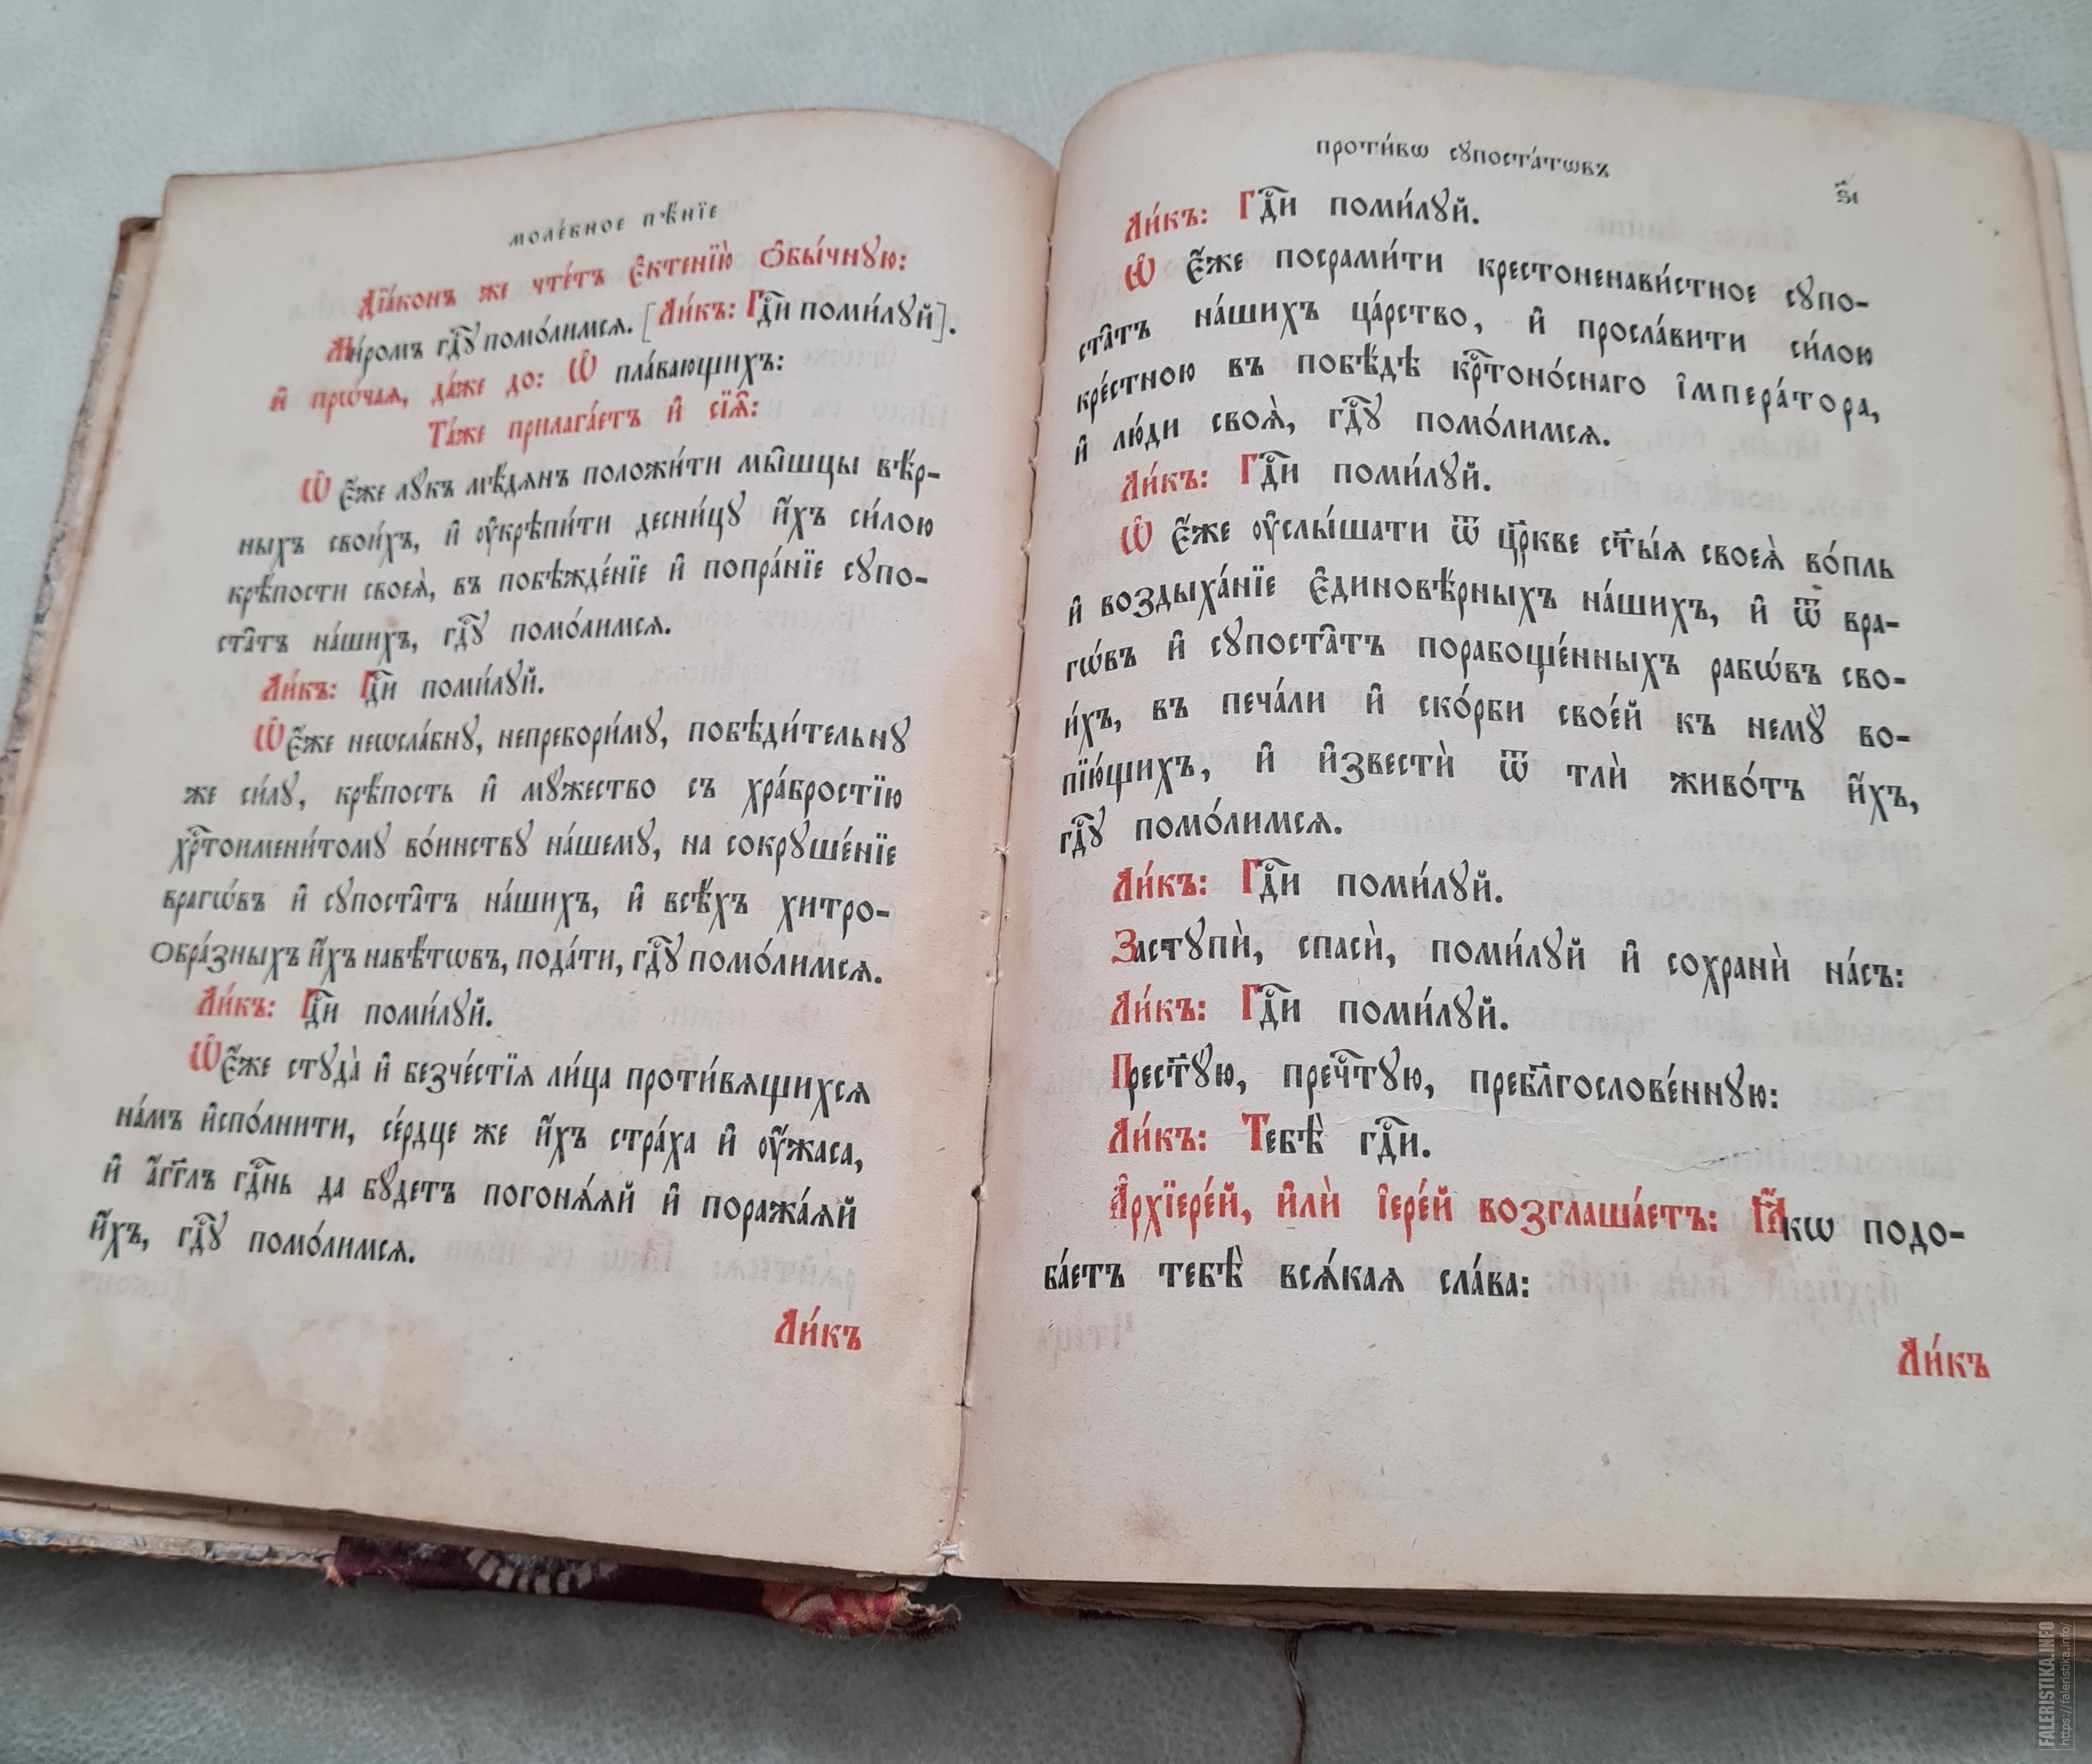 моле́бное пѣ́нїе
Дїа́конъ же чте́тъ є҆ктенїю̀ ѻ҆бы́чнꙋю:
Ми́ромъ гдⷭ҇ꙋ помо́лимсѧ. [Ли́къ: Гдⷭ҇и поми́лꙋй].
и҆ прѡ́чаѧ, да́же до: Ѡ҆ пла́вающихъ:
Та́же прилага́етъ и҆ сїѧ̑:
Ѡ҆ є҆́же лꙋкъ мѣ́дѧнъ положи́ти мы̑шцы вѣ́р-
ныхъ свои́хъ, и҆ ᲂу҆крѣпи́ти десни́цꙋ и҆́хъ си́лою
крѣ́пости своеѧ̀, въ побѣжде́нїе и҆ попра́нїе сꙋпо-
ста̑тъ на́шихъ, гдⷭ҇ꙋ помо́лимсѧ.
Ли́къ: Гдⷭ҇и поми́лꙋй.
Ѡ҆ є҆́же неѡсла́бнꙋ, непребори́мꙋ, побѣди́тельнꙋ
же си́лꙋ, крѣ́пость и҆ мꙋ́жество съ хра́бростїю
хрⷭ҇тоимени́томꙋ во́инствꙋ на́шемꙋ, на сокрꙋше́нїе
врагѡ́въ и҆ сꙋпоста̑тъ на́шихъ, и҆ всѣ́хъ хитро-
ѻбра́зныхъ и҆́хъ навѣ́тѡвъ, пода́ти, гдⷭ҇ꙋ помо́лимсѧ.
Ли́къ: Гдⷭ҇и поми́лꙋй.
Ѡ҆ є҆́же стꙋда̀ и҆ безче́стїѧ ли́ца проти́вѧщихсѧ
на́мъ и҆спо́лнити, се́рдце же и҆́хъ стра́ха и҆ ᲂу҆́жаса,
и҆ а҆́гг҃лъ гдⷭ҇нь да бꙋ́детъ погонѧ́ѧй и҆ поража́ѧй
и҆́хъ, гдⷭ҇ꙋ помо́лимсѧ.
Ли́къ
проти́вѡ сꙋпоста́тѡвъ
ѕ҃і
Ли́къ: Гдⷭ҇и поми́лꙋй.
Ѡ҆ є҆́же посрами́ти крестоненави́стное сꙋпо-
ста̑тъ на́шихъ ца́рство, и҆ просла́вити си́лою
кре́стною въ побѣ́дѣ крⷭ҇тоно́снаго і҆мпера́тора,
и҆ лю́ди своѧ̀, гдⷭ҇ꙋ помо́лимсѧ.
Ли́къ: Гдⷭ҇и поми́лꙋй.
Ѡ҆ є҆́же ᲂу҆слы́шати ѿ цр҃кве ст҃ы́ѧ своеѧ̀ во́пль
и҆ воздыха́нїе є҆диновѣ́рныхъ на́шихъ, и҆ ѿ вра-
гѡ́въ и҆ сꙋпоста̑тъ порабоще́нныхъ рабѡ́въ сво-
и́хъ, въ печа́ли и҆ ско́рби свое́й къ немꙋ̀ во-
пїю́щихъ, и҆ и҆звестѝ ѿ тлѝ живо́тъ и҆́хъ,
гдⷭ҇ꙋ помо́лимсѧ.
Ли́къ: Гдⷭ҇и поми́лꙋй.
Застꙋпѝ, спасѝ, поми́лꙋй и҆ сохранѝ на́съ:
Ли́къ: Гдⷭ҇и поми́лꙋй.
Прест҃ꙋ́ю, пречⷭ҇тꙋю, преблг҃ослове́ннꙋю:
Ли́къ: Тебѣ̀ гдⷭ҇и.
А҆рхїере́й, и҆лѝ і҆ере́й возглаша́етъ: Ꙗ҆́кѡ подо-
ба́етъ тебѣ̀ всѧ́каѧ сла́ва:
Ли́къ
FALERISTIKA.INFO
https://faleristika.info/